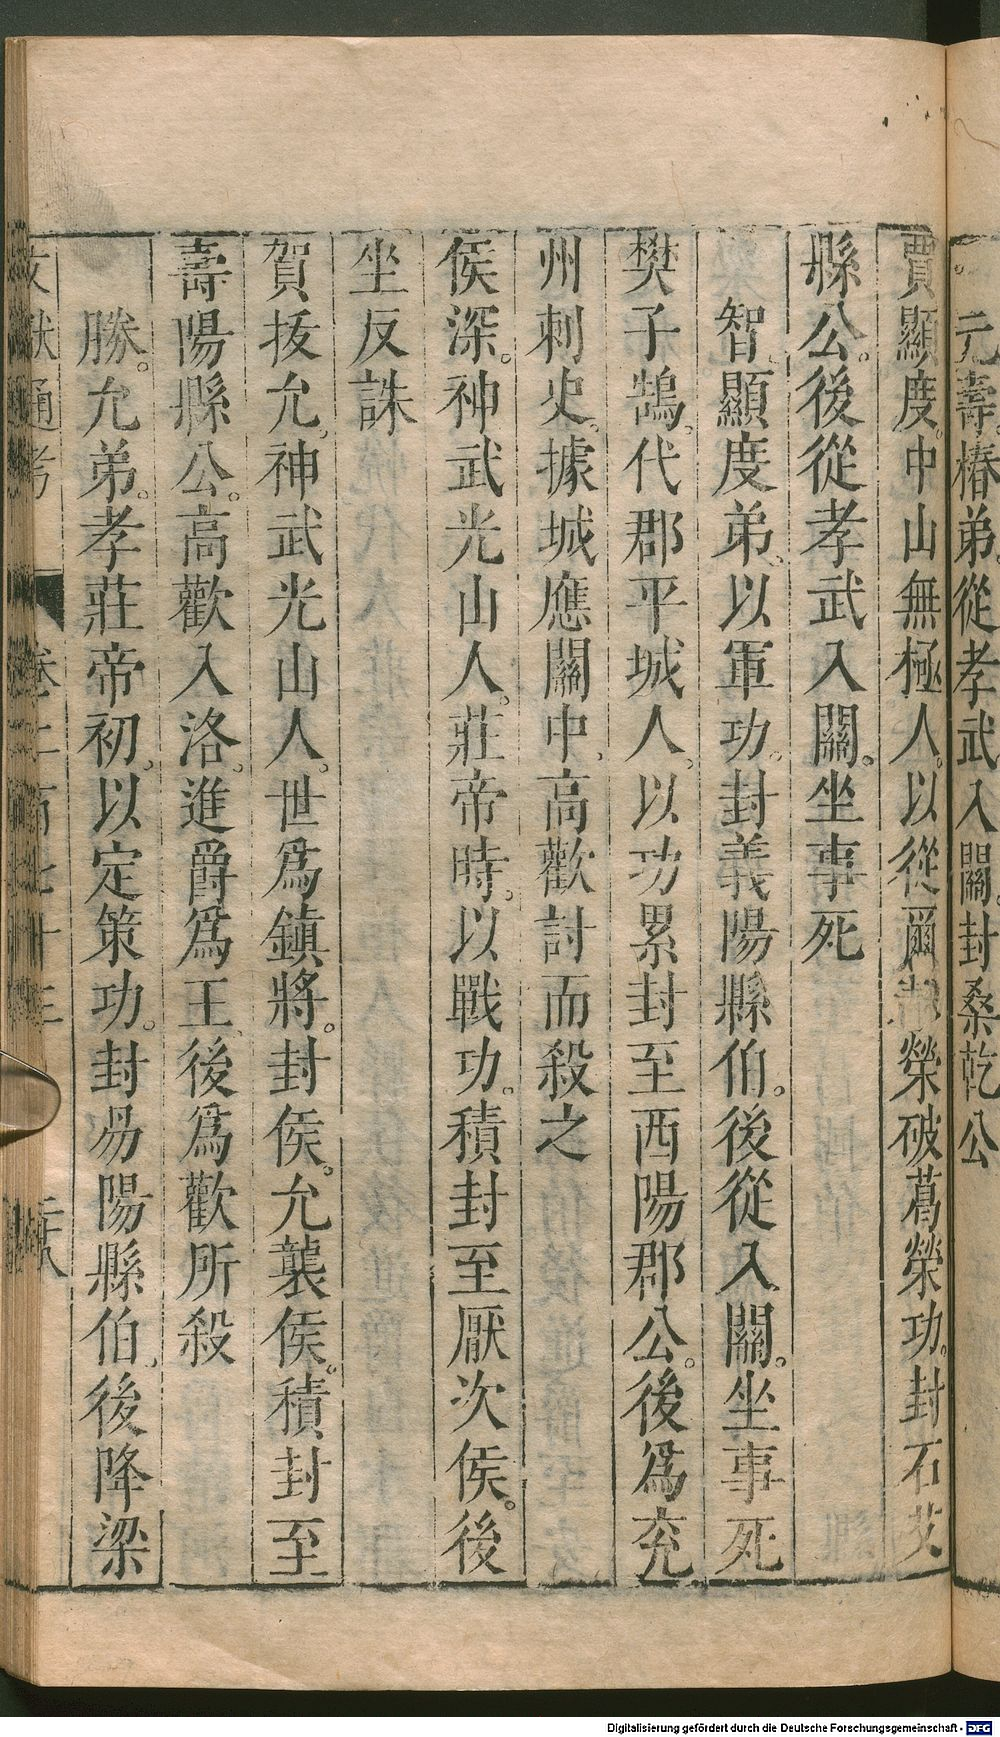 元壽。椿弟。從孝武入關。封桑乾公
賈顯度。中山無極人。以從爾朱榮破葛榮功。封石艾
縣公。後從孝武入關。坐事死
智。顯度弟。以軍功。封義陽縣伯。後從入關。坐事死
樊子鵠。代郡平城人。以功累封至西陽郡公。後爲兖
州刺史。據城應關中。高歡討而殺之
侯深。神武光山人。莊帝時。以戰功。積封至厭次侯。後
坐反誅
賀拔允。神武光山人。世爲鎮將。封侯。允襲侯。積封至
壽陽縣公。高歡入洛。進爵爲王。後爲歡所殺
勝。允弟。孝莊帝初。以定策功。封易陽縣伯。後降梁
文獻通考 卷二百七十三 二十八
Digitalisierung gefördert durch die Deutsche Forschungsgemeinschaft - DFG